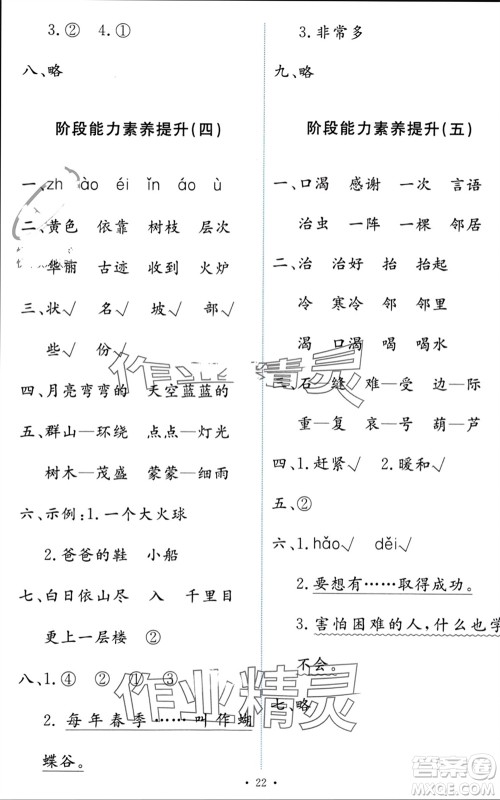 3.② 4.①
八、略
阶段能力素养提升(四)
一、zh ào éi ǐn áo ù
二、黄色 依靠 树枝 层次
华丽 古迹 收到 火炉
三、状√ 名√ 坡√ 部√
些√ 份√
四、月亮弯弯的 天空蓝蓝的
五、群山—环绕 点点—灯光
树木—茂盛 蒙蒙—细雨
六、示例:1.一个大火球
2.爸爸的鞋 小船
七、白日依山尽 入 千里目
更上一层楼 ②
八、1.④ ② ① ③
2.每年春季……叫作蝴
蝶谷。
3.非常多
九、略
阶段能力素养提升(五)
一、口渴 感谢 一次 言语
治虫 一阵 一棵 邻居
二、治 治好 抬 抬起
冷 寒冷 邻 邻里
渴 口渴 喝 喝水
三、石—缝 难—受 边—际
重—复 哀—号 葫—芦
四、1.赶紧√ 2.暖和√
五、②
六、1.hǎo√ děi√
2.要想有……取得成功。
3.害怕困难的人,什么也学
不会。
七、略
22
作业精灵
作业精灵
答案圈
MXQE.COM